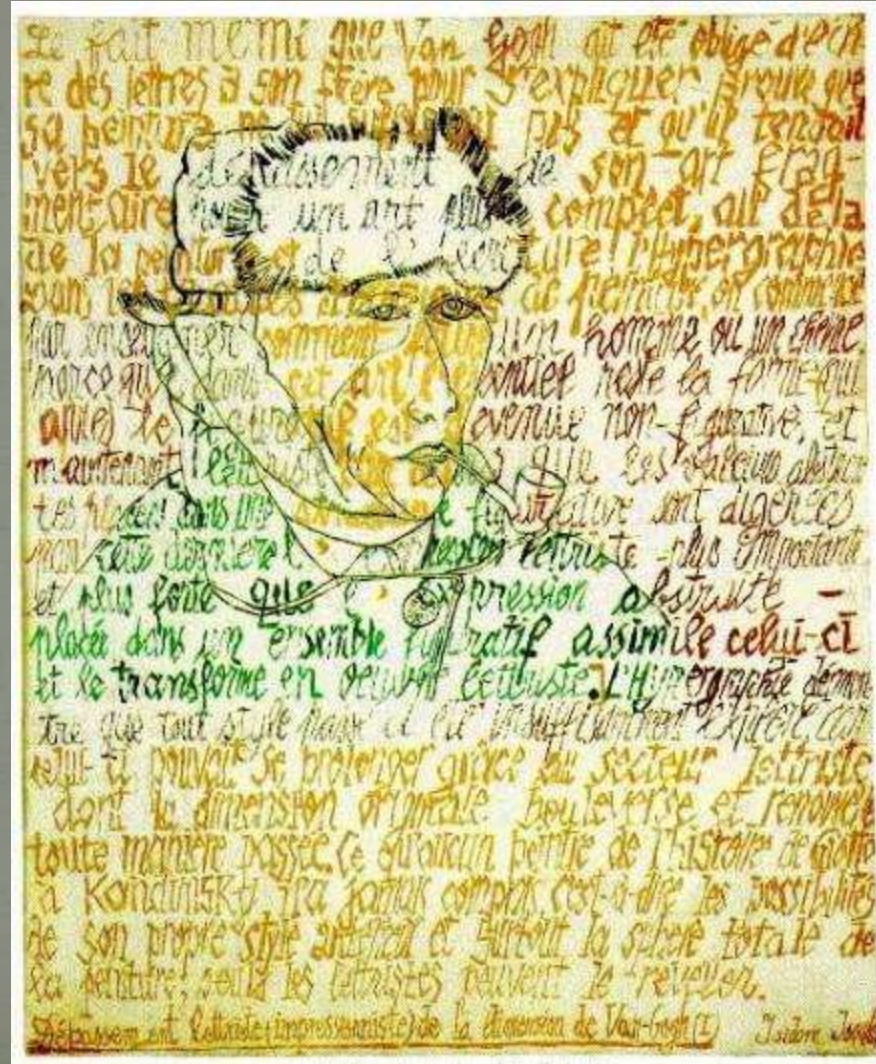 Le fait même que Van Gogh ait été obligé d'écri
re des lettres à son frère pour s'expliquer prouve que
sa peinture ne pas et qu'il tendait
vers le dépassement de son art frag-
mentaire un art plus complet, au delà
de la peinture et de l'écriture! l'Hypergraphie
dans les de peinture, on commence
par enseigner comment un homme ou un chêne.
parce que dans cet art reste la forme qui
après le figuratif est devenue non-figurative, et
maintenant lettriste que les valeurs abstrai
tes placées dans une figurative sont digérées
par cette dernière l' lettriste - plus importante
et plus forte que l'expression abstraite -
placée dans un ensemble figuratif assimile celui-ci
et le transforme en oeuvre lettriste. L'Hypergraphie démon
tre que tout style passé a été insuffisamment exploré, car
celui-ci pouvait se prolonger grâce au secteur lettriste
dont la dimension originale bouleverse et renouvelle
toute manière passée. Ce qu'aucun peintre de l'histoire de Giotto
à Kandinsky n'a jamais compris c'est-à-dire les possibilités
de son propre style et surtout la sphère totale de
la peinture, seuls les lettristes peuvent le révéler.
Dépassement lettriste (impressionniste) de la dimension de Van-Gogh (I) Isidore Isou